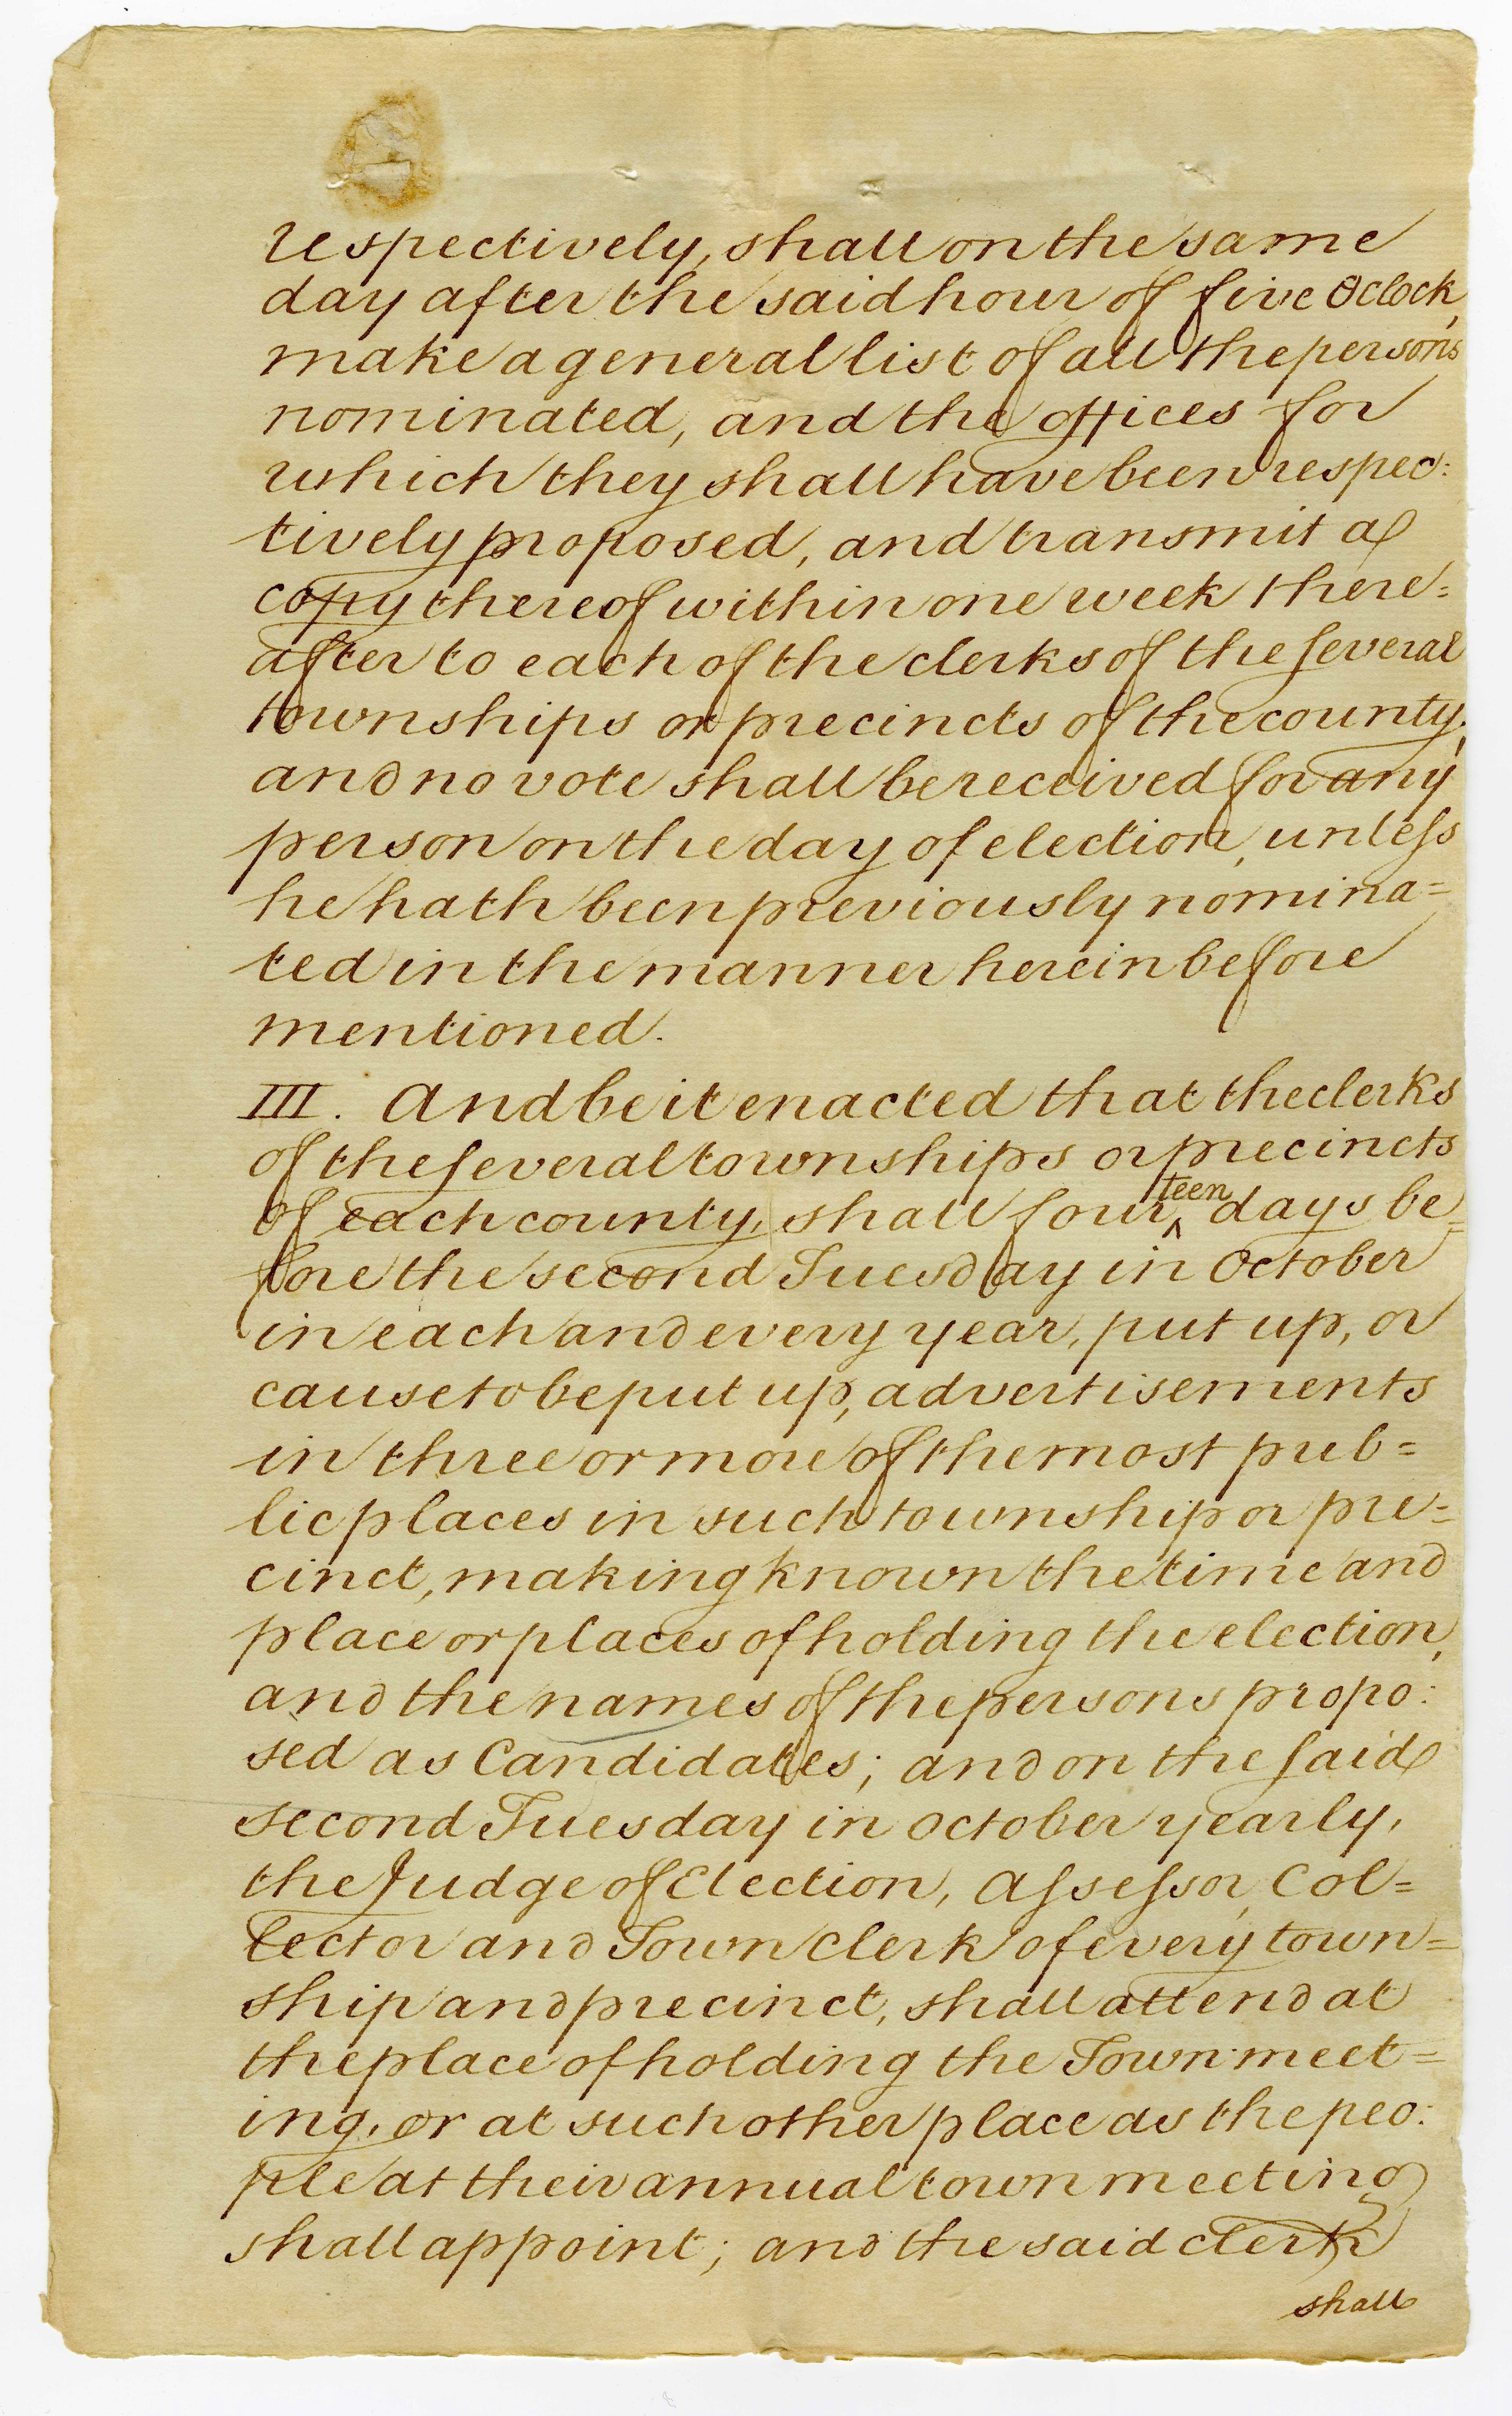 respectively, shall on the same
day after the said hour of five Oclock,
make a general list of all the persons
nominated, and the offices for
which they shall have been respec:
tively proposed, and transmit a
copy thereof within one week there=
after to each of the clerks of the several
townships or precincts of the county;
and no vote shall be received for any
person on the day of election, unless
he hath been previously nomina=
ted in the manner herein before
mentioned.
III. And be it enacted that the clerks
of the several townships or precincts
of each county, shall fourteen days be=
fore the second Tuesday in October
in each and every year, put up, or
cause to be put up, advertisements
in three or more of the most pub=
lic places in such township or pre=
cinct, making known the time and
place or places of holding the election,
and the names of the persons propo:
sed as Candidates; and on the said
second Tuesday in October yearly,
the Judge of Election, Assessor, Col=
lector and Town clerk of every town=
ship and precinct, shall attend at
the place of holding the Town meet=
ing, or at such other place as the peo:
ple at their annual town meeting
shall appoint; and the said clerk
shall